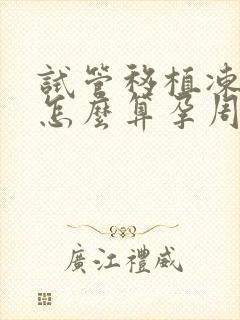 試管移植凍
怎麼算孕周
廣江禮威